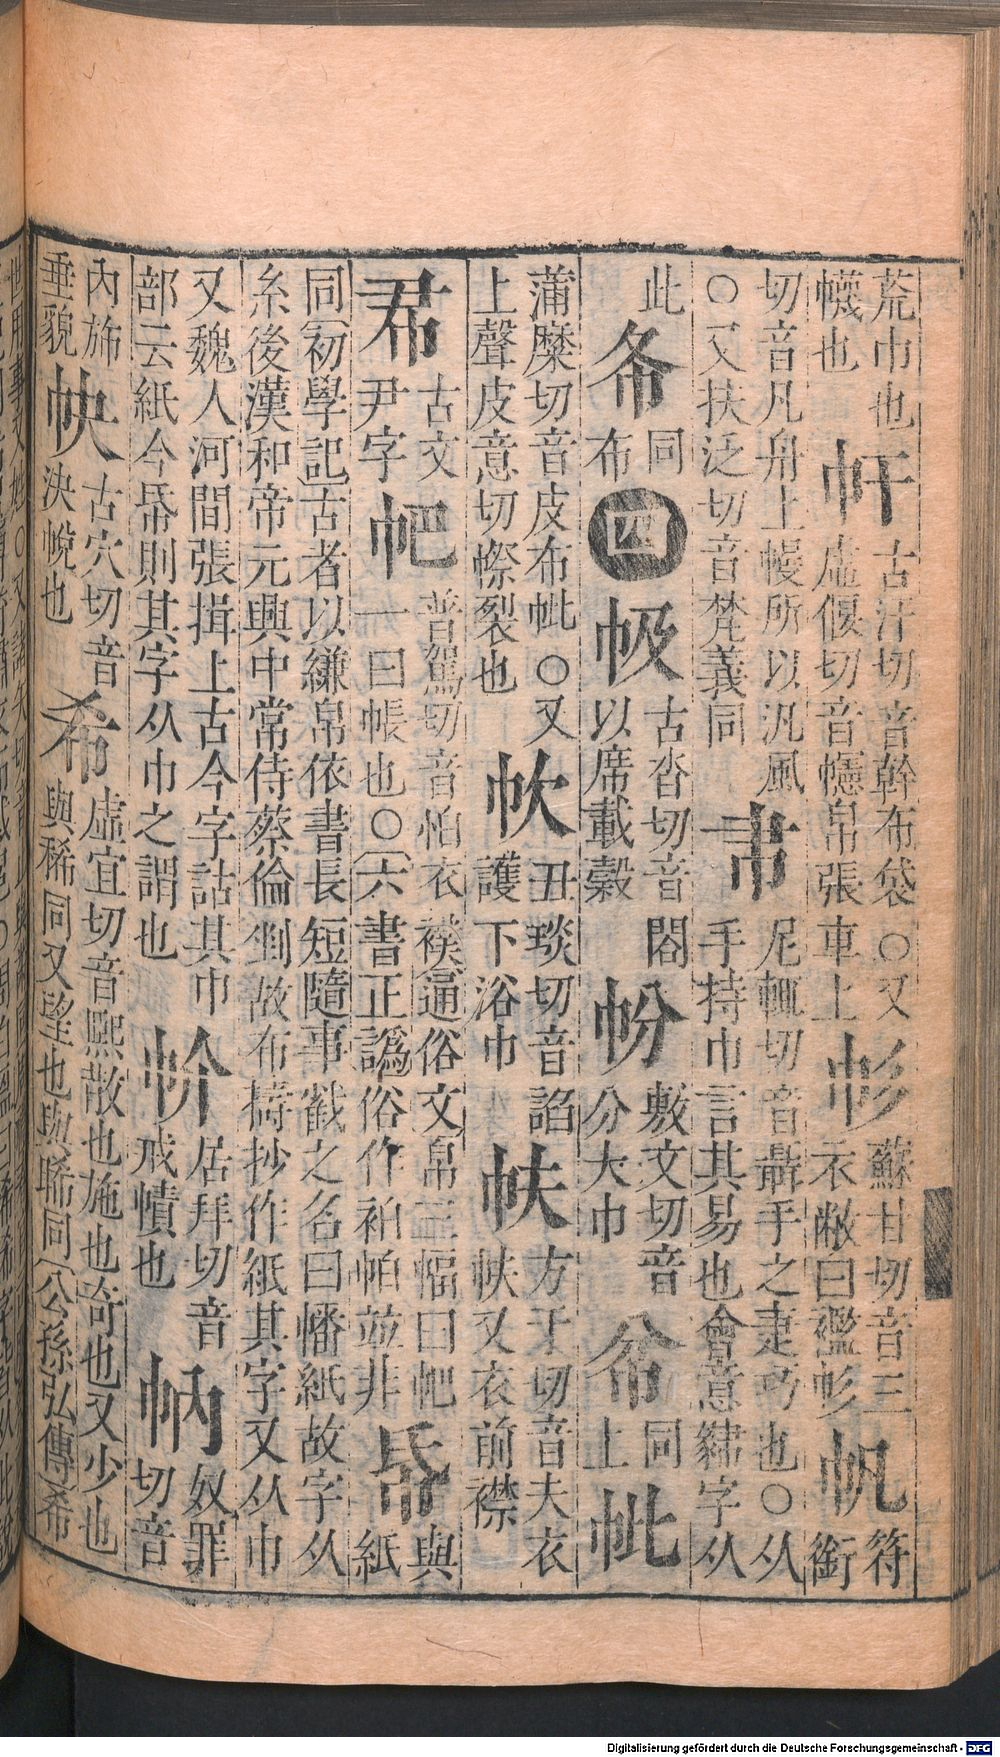 荒巾也 㡀 古汗切音幹布袋〇又
幭也 虛偃切音幰帛張車上 㡎 蘇甘切音三
不敝曰襤㡎 帆 符銜
切音凡舟上幔所以汎風
〇又扶泛切音梵義同 𢁽 尼輒切音聶手之疌巧也〇从
手持巾言其易也會意繍字从
此 㠽 同布 四 㠷 古沓切音閤
以席載穀 帉 敷文切音分大巾 㡂 同上 㡙
蒲糜切音皮布㡙〇又
上聲皮意切幤裂也 㡊 丑琰切音諂
護下浴巾 帗 方于切音夫衣
帗又衣前襟
帬 古文尹字 帊 普駕切音怕衣襆通俗文帛三幅曰帊
一曰帳也〇六書正譌俗作袙帕並非 帋 與紙
同初學記古者以縑帛依書長短隨事截之名曰幡紙故字从
糸後漢和帝元興中常侍蔡倫剉故布擣抄作紙其字又从巾
又魏人河間張揖上古今字詁其巾
部云紙今帋則其字从巾之謂也 㡁 居拜切音
戒幘也 㡅 奴罪切音
內旆垂貌 㡇 古穴切音決帨也 希 虛宜切音熙散也施也奇也又少也
與稀同又望也與睎同公孫弘傳希
Digitalisierung gefördert durch die Deutsche Forschungsgemeinschaft - DFG